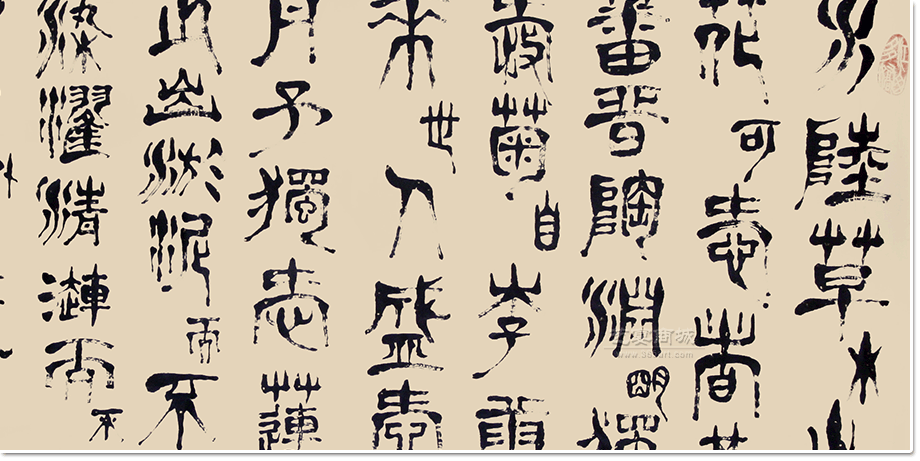 水陸草木之
花可愛者甚
蕃晉陶淵明獨
愛菊自李唐
來世人盛愛
丹予獨愛蓮
之出淤泥而不
染濯清漣而不